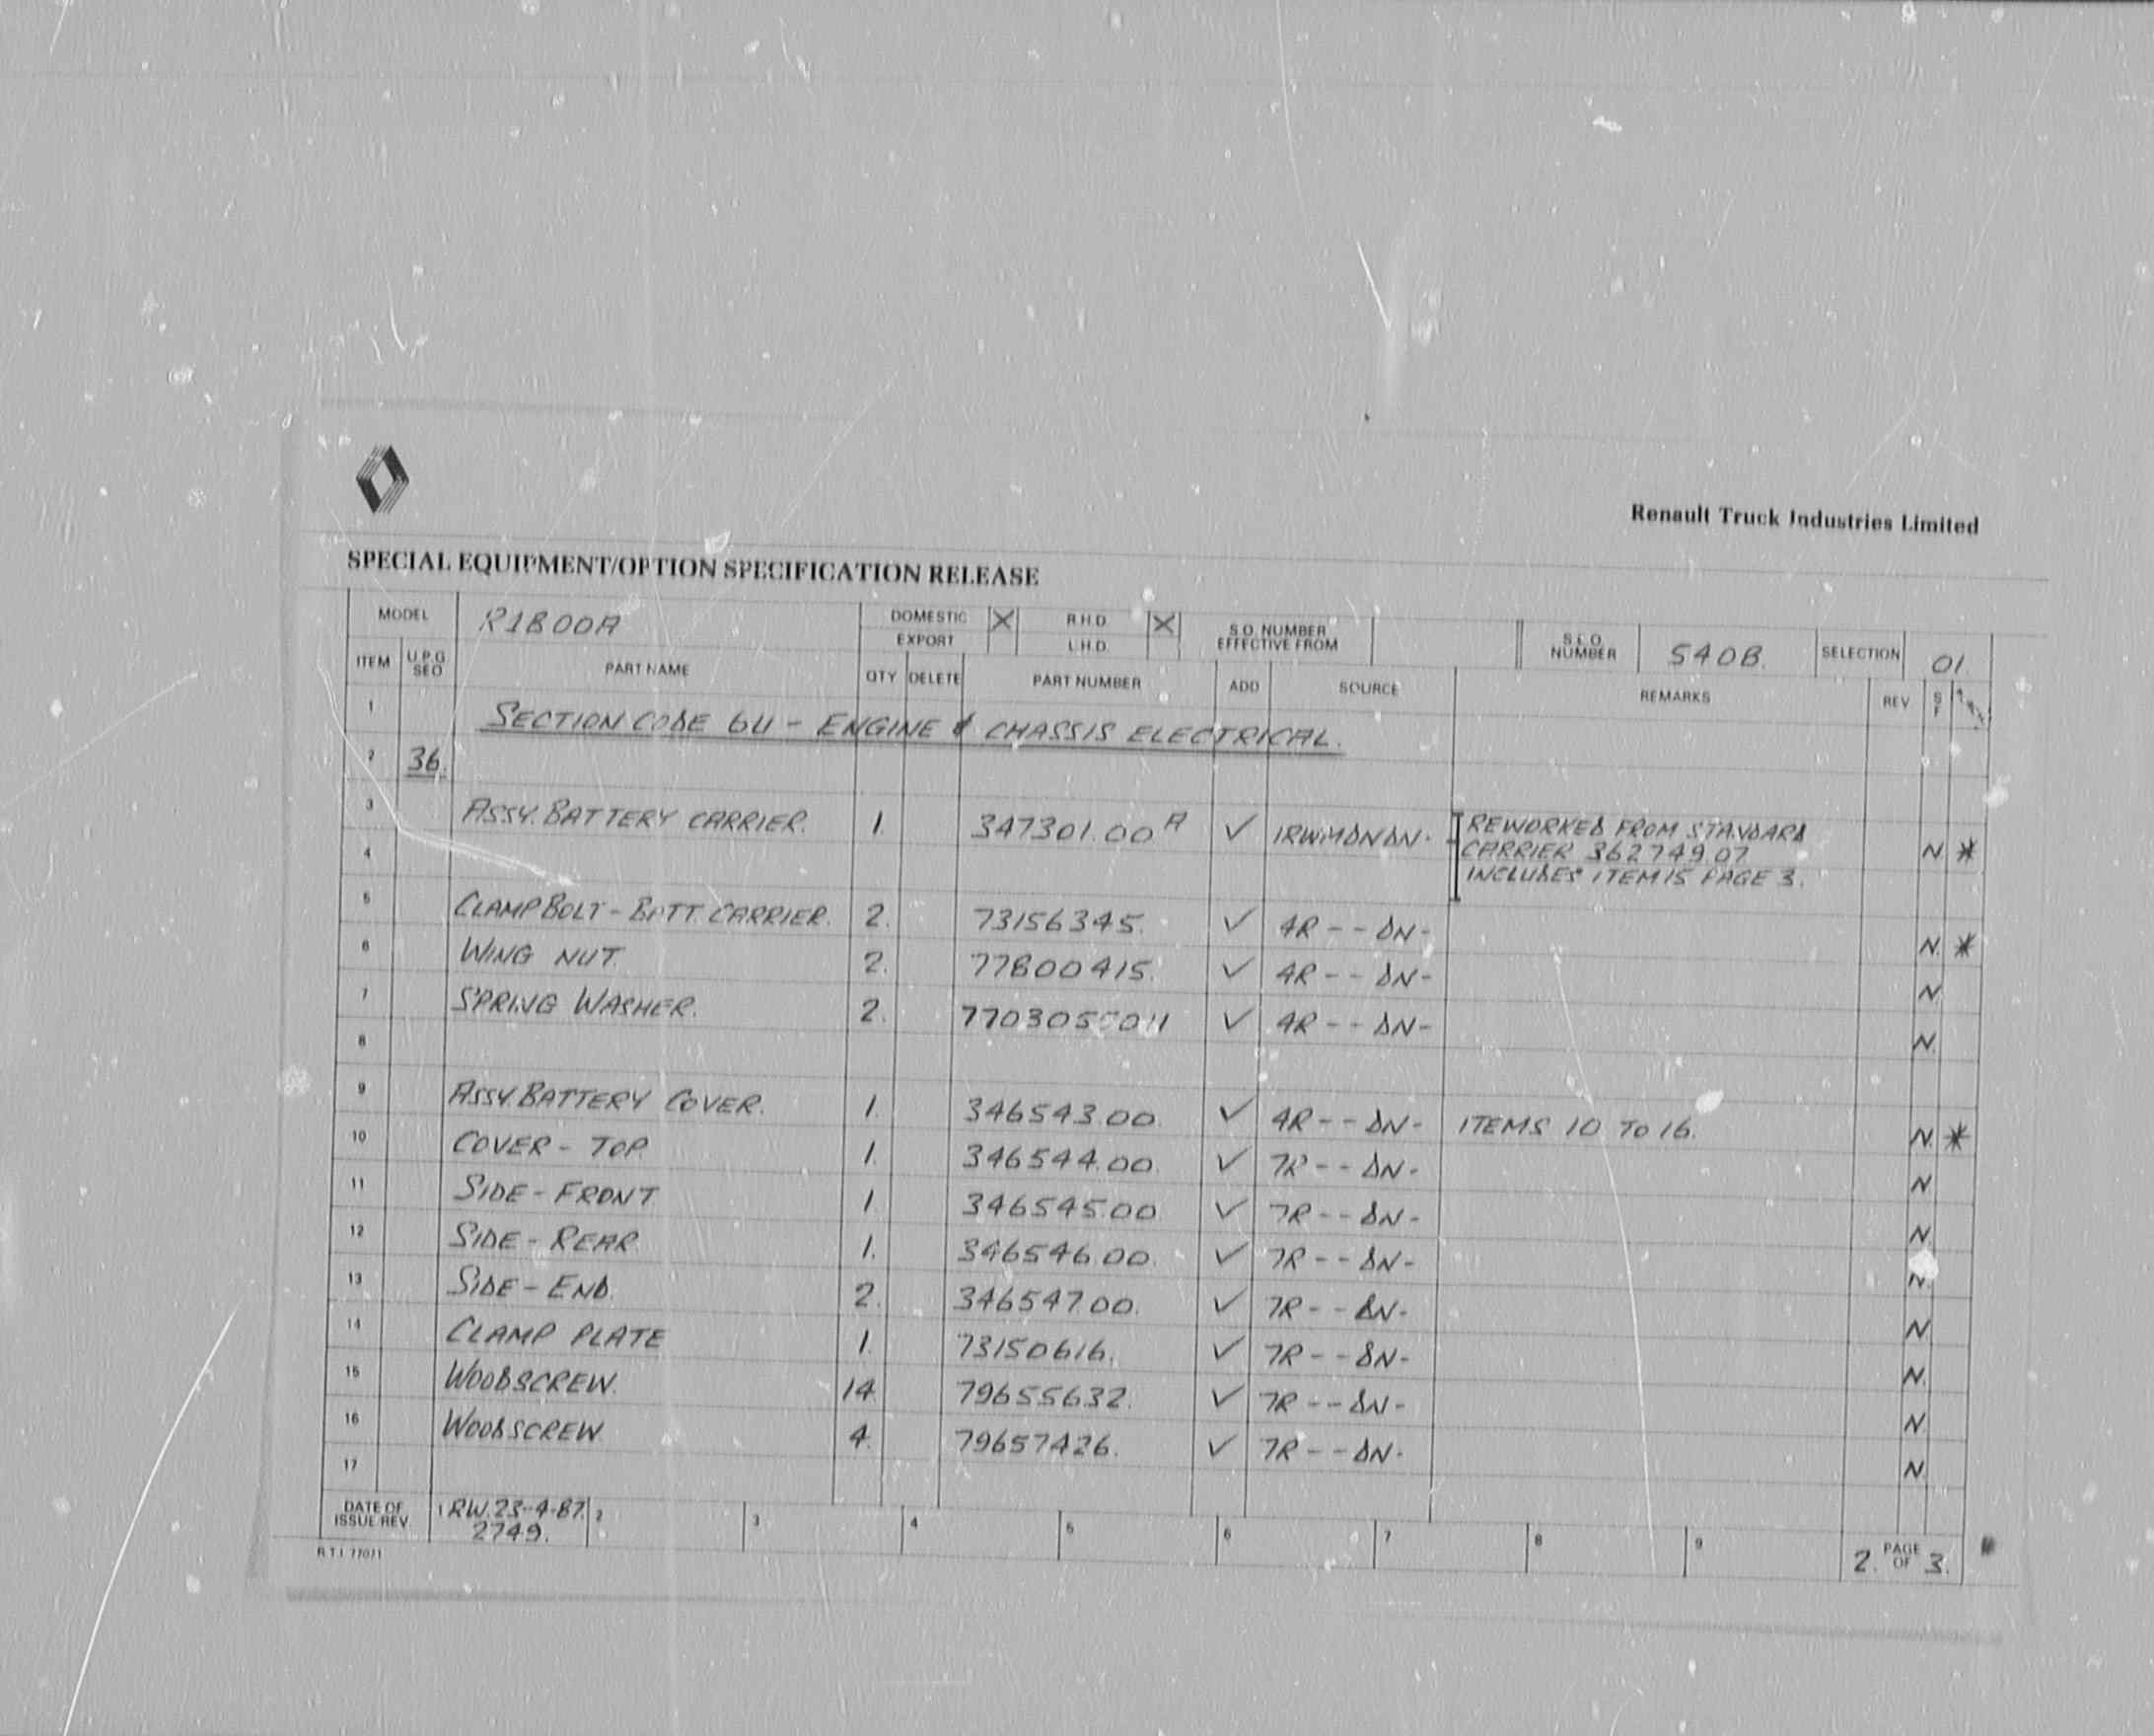 Renault Truck Industries Limited
SPECIAL EQUIPMENT/OPTION SPECIFICATION RELEASE
MODEL R1800A DOMESTIC X R.H.D. X S.O. NUMBER S.E.O. 540B. SELECTION 01.
EXPORT L.H.D. EFFECTIVE FROM NUMBER
ITEM U.P.G SEQ PART NAME QTY DELETE PART NUMBER ADD SOURCE REMARKS REV S F
1 SECTION CODE 6U - ENGINE & CHASSIS ELECTRICAL.
2 36.
3 ASSY. BATTERY CARRIER. 1. 347301.00 A ✓ 1RWMDNDN- REWORKED FROM STANDARD
4 CARRIER 362749.07 N *
INCLUDES ITEM 15 PAGE 3.
5 CLAMP BOLT - BATT. CARRIER. 2. 73156345. ✓ 4R -- DN- N. *
6 WING NUT. 2. 77800415. ✓ 4R -- DN- N
7 SPRING WASHER. 2. 7703055011 ✓ 4R -- DN- N.
8
9 ASSY. BATTERY COVER. 1. 346543.00. ✓ 4R -- DN- ITEMS 10 TO 16. N. *
10 COVER - TOP. 1. 346544.00. ✓ 7R -- DN- N
11 SIDE - FRONT 1. 346545.00 ✓ 7R -- DN- N.
12 SIDE - REAR 1. 346546.00. ✓ 7R -- DN- N.
13 SIDE - END. 2. 346547.00. ✓ 7R -- DN- N
14 CLAMP PLATE 1. 73150616. ✓ 7R -- DN- N.
15 WOODSCREW. 14. 79655632. ✓ 7R -- DN- N
16 WOODSCREW 4. 79657426. ✓ 7R -- DN- N
17
DATE OF ISSUE/REV 1 RW. 23-4-87. 2 3 4 5 6 7 8 9 2. PAGE OF 3.
2749.
R.T.I. 77071